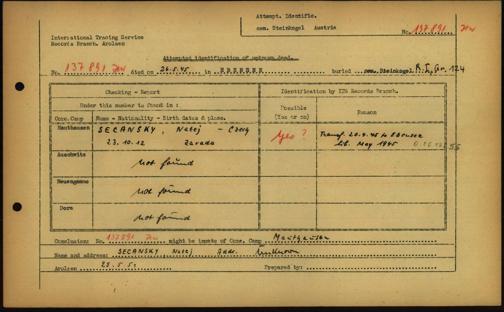 Attempt. Identific.
cem. Steinkogel Austria
No. 137891
International Tracing Service
Records Branch. Arolsen
Attempted identification of unknown dead.
No. 137 891 died on 26.5.45 in EBENSEE buried cem. Steinkogel R. I, Gr. 124
Checking - Report
Under this number is found in :
Conc. Camp Name - Nationality - Birth dates & place.
Identification by ITS Records Branch.
Possible (Yes or no)
Reason
Mauthausen SECANSKY, Matej - Czech
23.10.12 Zavada
Yes ?
Transf. 20.4.45 to Ebensee
lib. May 1945
Auschwitz not found
Neuengamme not found
Dora not found
Conclusion: No. 137891 might be inmate of Conc. Camp Mauthausen
Name and address: SECANSKY, Matej Addr. unknown
Arolsen
Prepared by: